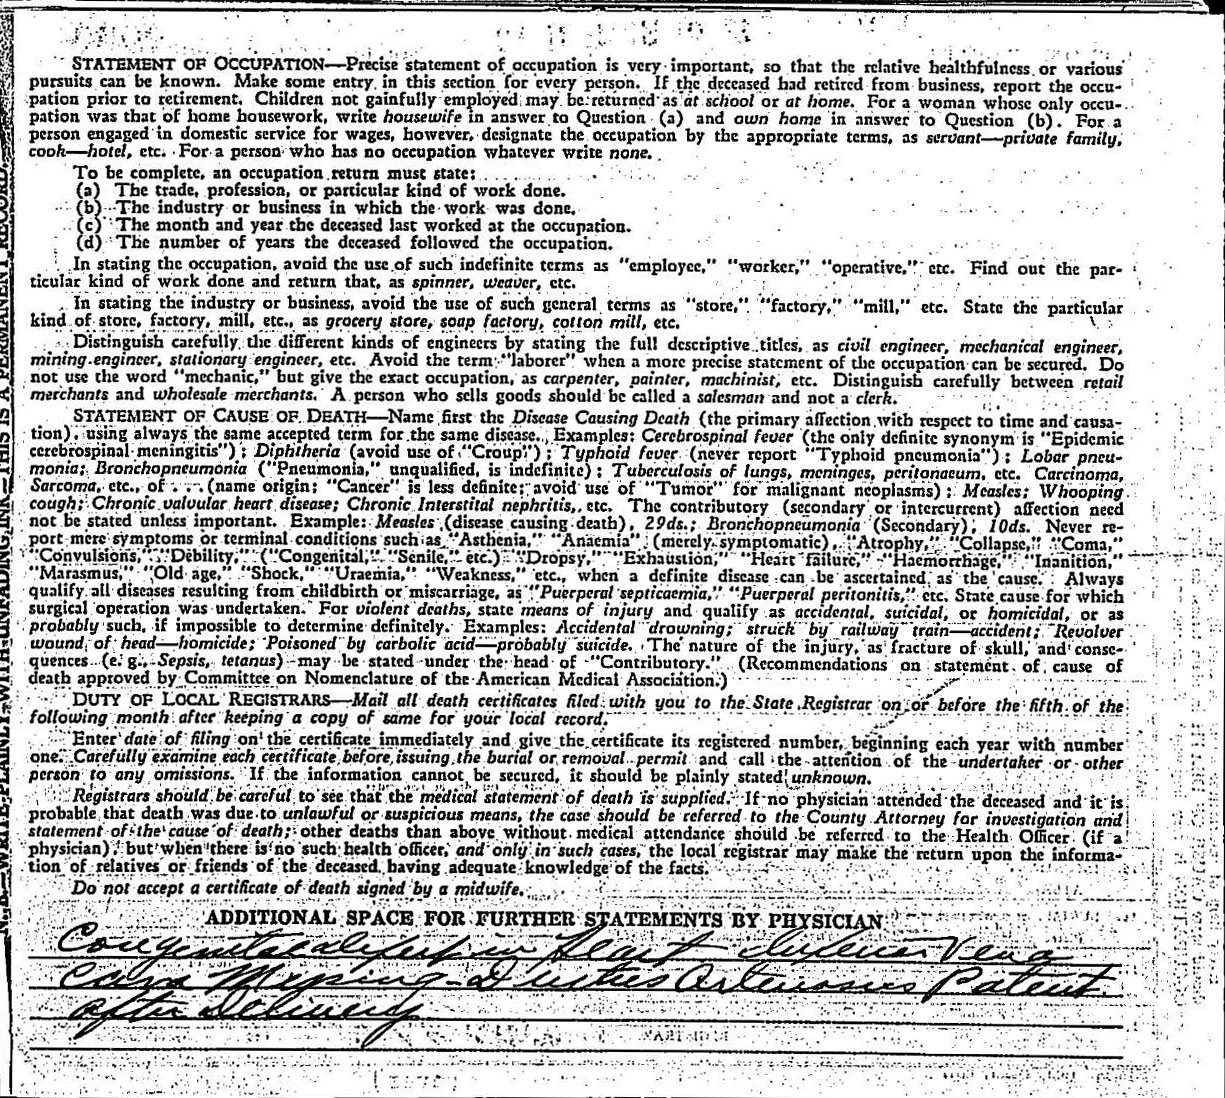 STATEMENT OF OCCUPATION—Precise statement of occupation is very important, so that the relative healthfulness or various
pursuits can be known. Make some entry in this section for every person. If the deceased had retired from business, report the occu-
pation prior to retirement. Children not gainfully employed may be returned as at school or at home. For a woman whose only occu-
pation was that of home housework, write housewife in answer to Question (a) and own home in answer to Question (b). For a
person engaged in domestic service for wages, however, designate the occupation by the appropriate terms, as servant—private family,
cook—hotel, etc. For a person who has no occupation whatever write none.
To be complete, an occupation return must state:
(a) The trade, profession, or particular kind of work done.
(b) The industry or business in which the work was done.
(c) The month and year the deceased last worked at the occupation.
(d) The number of years the deceased followed the occupation.
In stating the occupation, avoid the use of such indefinite terms as "employee," "worker," "operative," etc. Find out the par-
ticular kind of work done and return that, as spinner, weaver, etc.
In stating the industry or business, avoid the use of such general terms as "store," "factory," "mill," etc. State the particular
kind of store, factory, mill, etc., as grocery store, soap factory, cotton mill, etc.
Distinguish carefully the different kinds of engineers by stating the full descriptive titles, as civil engineer, mechanical engineer,
mining engineer, stationary engineer, etc. Avoid the term "laborer" when a more precise statement of the occupation can be secured. Do
not use the word "mechanic," but give the exact occupation, as carpenter, painter, machinist, etc. Distinguish carefully between retail
merchants and wholesale merchants. A person who sells goods should be called a salesman and not a clerk.
STATEMENT OF CAUSE OF DEATH—Name first the Disease Causing Death (the primary affection with respect to time and causa-
tion), using always the same accepted term for the same disease. Examples: Cerebrospinal fever (the only definite synonym is "Epidemic
cerebrospinal meningitis"); Diphtheria (avoid use of "Croup"); Typhoid fever (never report "Typhoid pneumonia"); Lobar pneu-
monia; Bronchopneumonia ("Pneumonia," unqualified, is indefinite); Tuberculosis of lungs, meninges, peritonaeum, etc. Carcinoma,
Sarcoma, etc., of . . . (name origin; "Cancer" is less definite; avoid use of "Tumor" for malignant neoplasms); Measles; Whooping
cough; Chronic valvular heart disease; Chronic Interstital nephritis, etc. The contributory (secondary or intercurrent) affection need
not be stated unless important. Example: Measles (disease causing death), 29ds.; Bronchopneumonia (Secondary), 10ds. Never re-
port mere symptoms or terminal conditions such as "Asthenia," "Anaemia" (merely symptomatic), "Atrophy," "Collapse," "Coma,"
"Convulsions," "Debility," ("Congenital," "Senile," etc.) "Dropsy," "Exhaustion," "Heart failure," "Haemorrhage," "Inanition,"
"Marasmus," "Old age," "Shock," "Uraemia," "Weakness," etc., when a definite disease can be ascertained as the cause. Always
qualify all diseases resulting from childbirth or miscarriage, as "Puerperal septicaemia," "Puerperal peritonitis," etc. State cause for which
surgical operation was undertaken. For violent deaths, state means of injury and qualify as accidental, suicidal, or homicidal, or as
probably such, if impossible to determine definitely. Examples: Accidental drowning; struck by railway train—accident; Revolver
wound of head—homicide; Poisoned by carbolic acid—probably suicide. The nature of the injury, as fracture of skull, and conse-
quences (e. g., Sepsis, tetanus) may be stated under the head of "Contributory." (Recommendations on statement of cause of
death approved by Committee on Nomenclature of the American Medical Association.)
DUTY OF LOCAL REGISTRARS—Mail all death certificates filed with you to the State Registrar on or before the fifth of the
following month after keeping a copy of same for your local record.
Enter date of filing on the certificate immediately and give the certificate its registered number, beginning each year with number
one. Carefully examine each certificate before issuing the burial or removal permit and call the attention of the undertaker or other
person to any omissions. If the information cannot be secured, it should be plainly stated unknown.
Registrars should be careful to see that the medical statement of death is supplied. If no physician attended the deceased and it is
probable that death was due to unlawful or suspicious means, the case should be referred to the County Attorney for investigation and
statement of the cause of death; other deaths than above without medical attendance should be referred to the Health Officer (if a
physician), but when there is no such health officer, and only in such cases, the local registrar may make the return upon the informa-
tion of relatives or friends of the deceased having adequate knowledge of the facts.
Do not accept a certificate of death signed by a midwife.
ADDITIONAL SPACE FOR FURTHER STATEMENTS BY PHYSICIAN
Congenital defect in Heart Inferior Vena
Cava Missing - Ductus Arteriosus Patent
after Delivery
N. B.—WRITE PLAINLY, WITH UNFADING INK—THIS IS A PERMANENT RECORD.